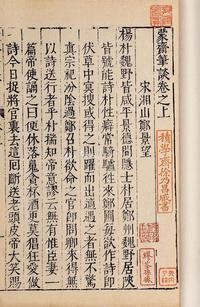 蒙齋筆談卷之上
宋湘山鄭景望
楊朴魏野皆咸平景德間隱士朴居鄭州魏野居陜
皆號能詩朴性癖常騎驢往來鄭圃每欲作詩即
伏草中冥搜或得之則躍而出適遇之者無不驚
真宗祀汾陰過鄭召朴欲命之官即問卿來得無
以詩送行者乎朴揣知帝意謬云無有惟臣妻一
篇帝使誦之曰更休落魄貪杯酒更莫猖狂愛做
詩今日捉將官裏去這回斷送老頭皮帝大笑賜
積學齋徐乃昌藏書